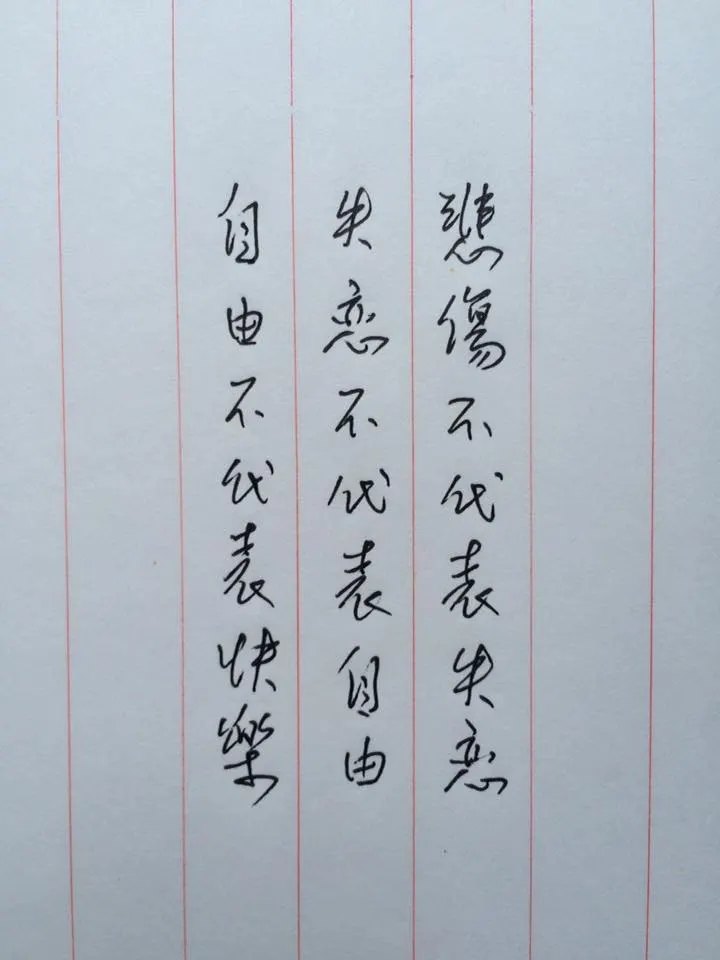 悲傷不代表失恋
失恋不代表自由
自由不代表快樂